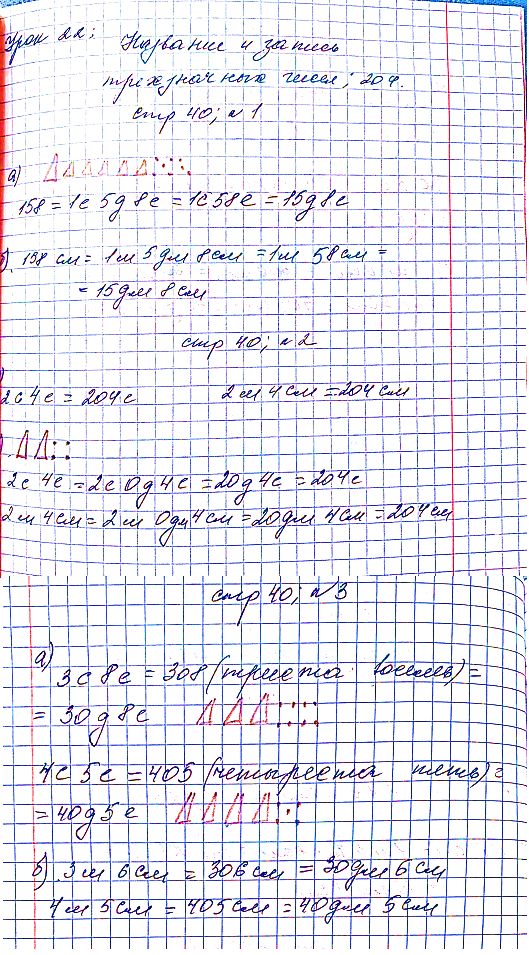 Урок 22; Название и запись
трехзначных чисел; 20 ч.
стр 40; №1
а)
158 = 1с 5д 8е = 1с 58е = 15д 8е
б) 158 см = 1м 5дм 8см = 1м 58см =
= 15дм 8см
стр 40; №2
2с 4е = 204е 2м 4см = 204 см
2с 4е = 2с 0д 4е = 20д 4е = 204е
2м 4см = 2м 0дм 4см = 20дм 4см = 204см
стр 40; №3
а)
3с 8е = 308 (триста восемь) =
= 30д 8е
4с 5е = 405 (четыреста пять) =
= 40д 5е
б) 3м 6см = 306см = 30дм 6см
4м 5см = 405см = 40дм 5см